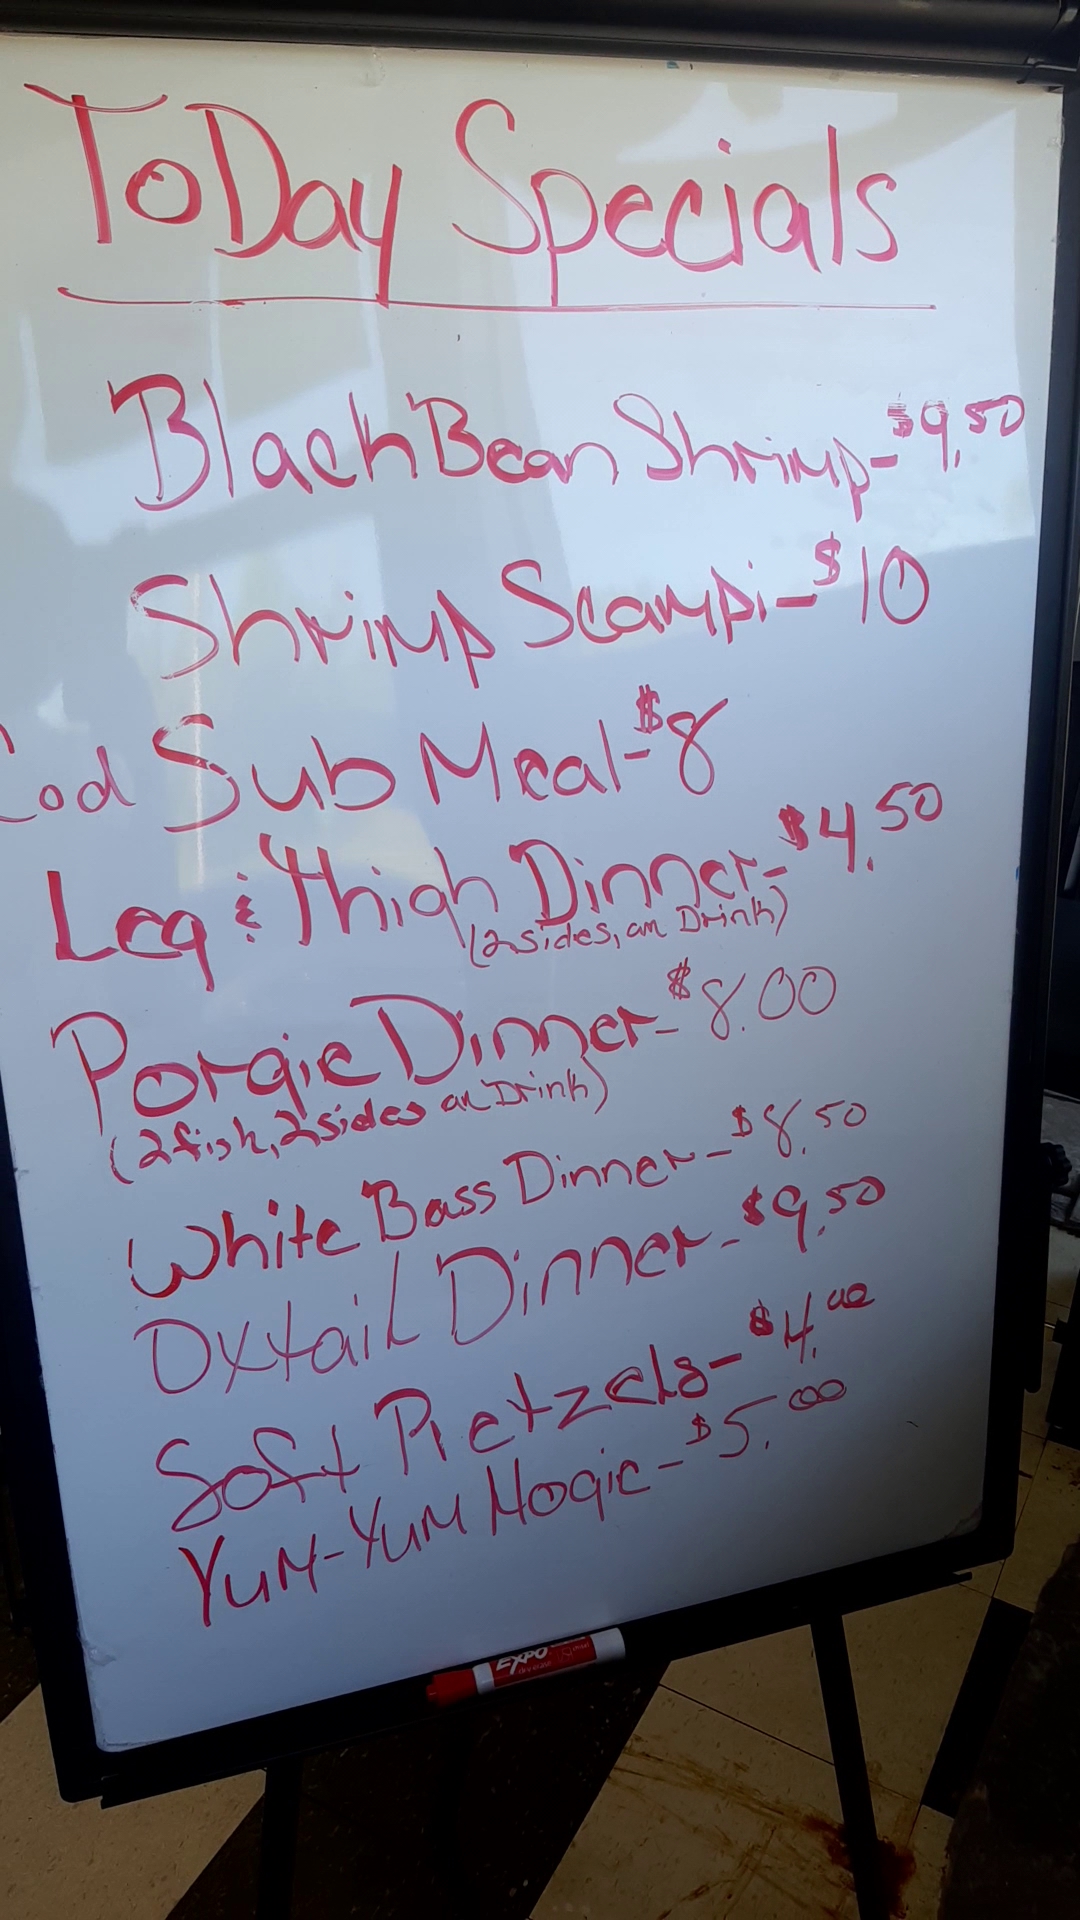 ToDay Specials
Black Bean Shrimp-$9.50
Shrimp Scampi-$10
Cod Sub Meal-$8
Leg & Thigh Dinner-$4.50
(2 sides, an Drink)
Porgie Dinner-$8.00
(2 fish, 2 sides an Drink)
White Bass Dinner-$8.50
Oxtail Dinner-$9.50
Soft Pretzels-$4.00
Yum-Yum Magic-$5.00
EXPO